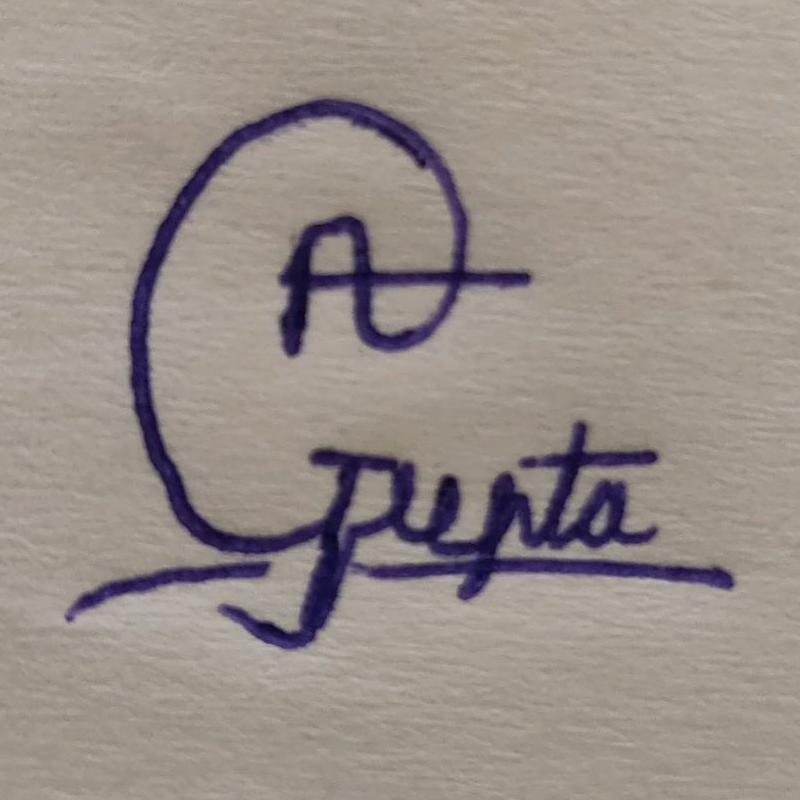 A Gupta